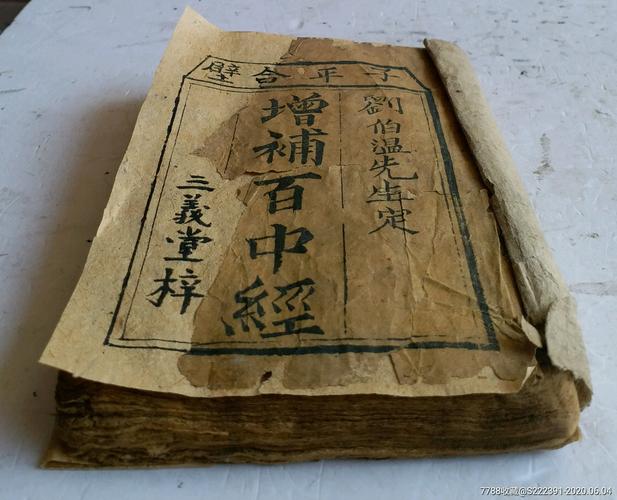 子平合璧
劉伯溫先生定
增補百中經
三義堂梓
7788收藏@S222391-2020.06.04